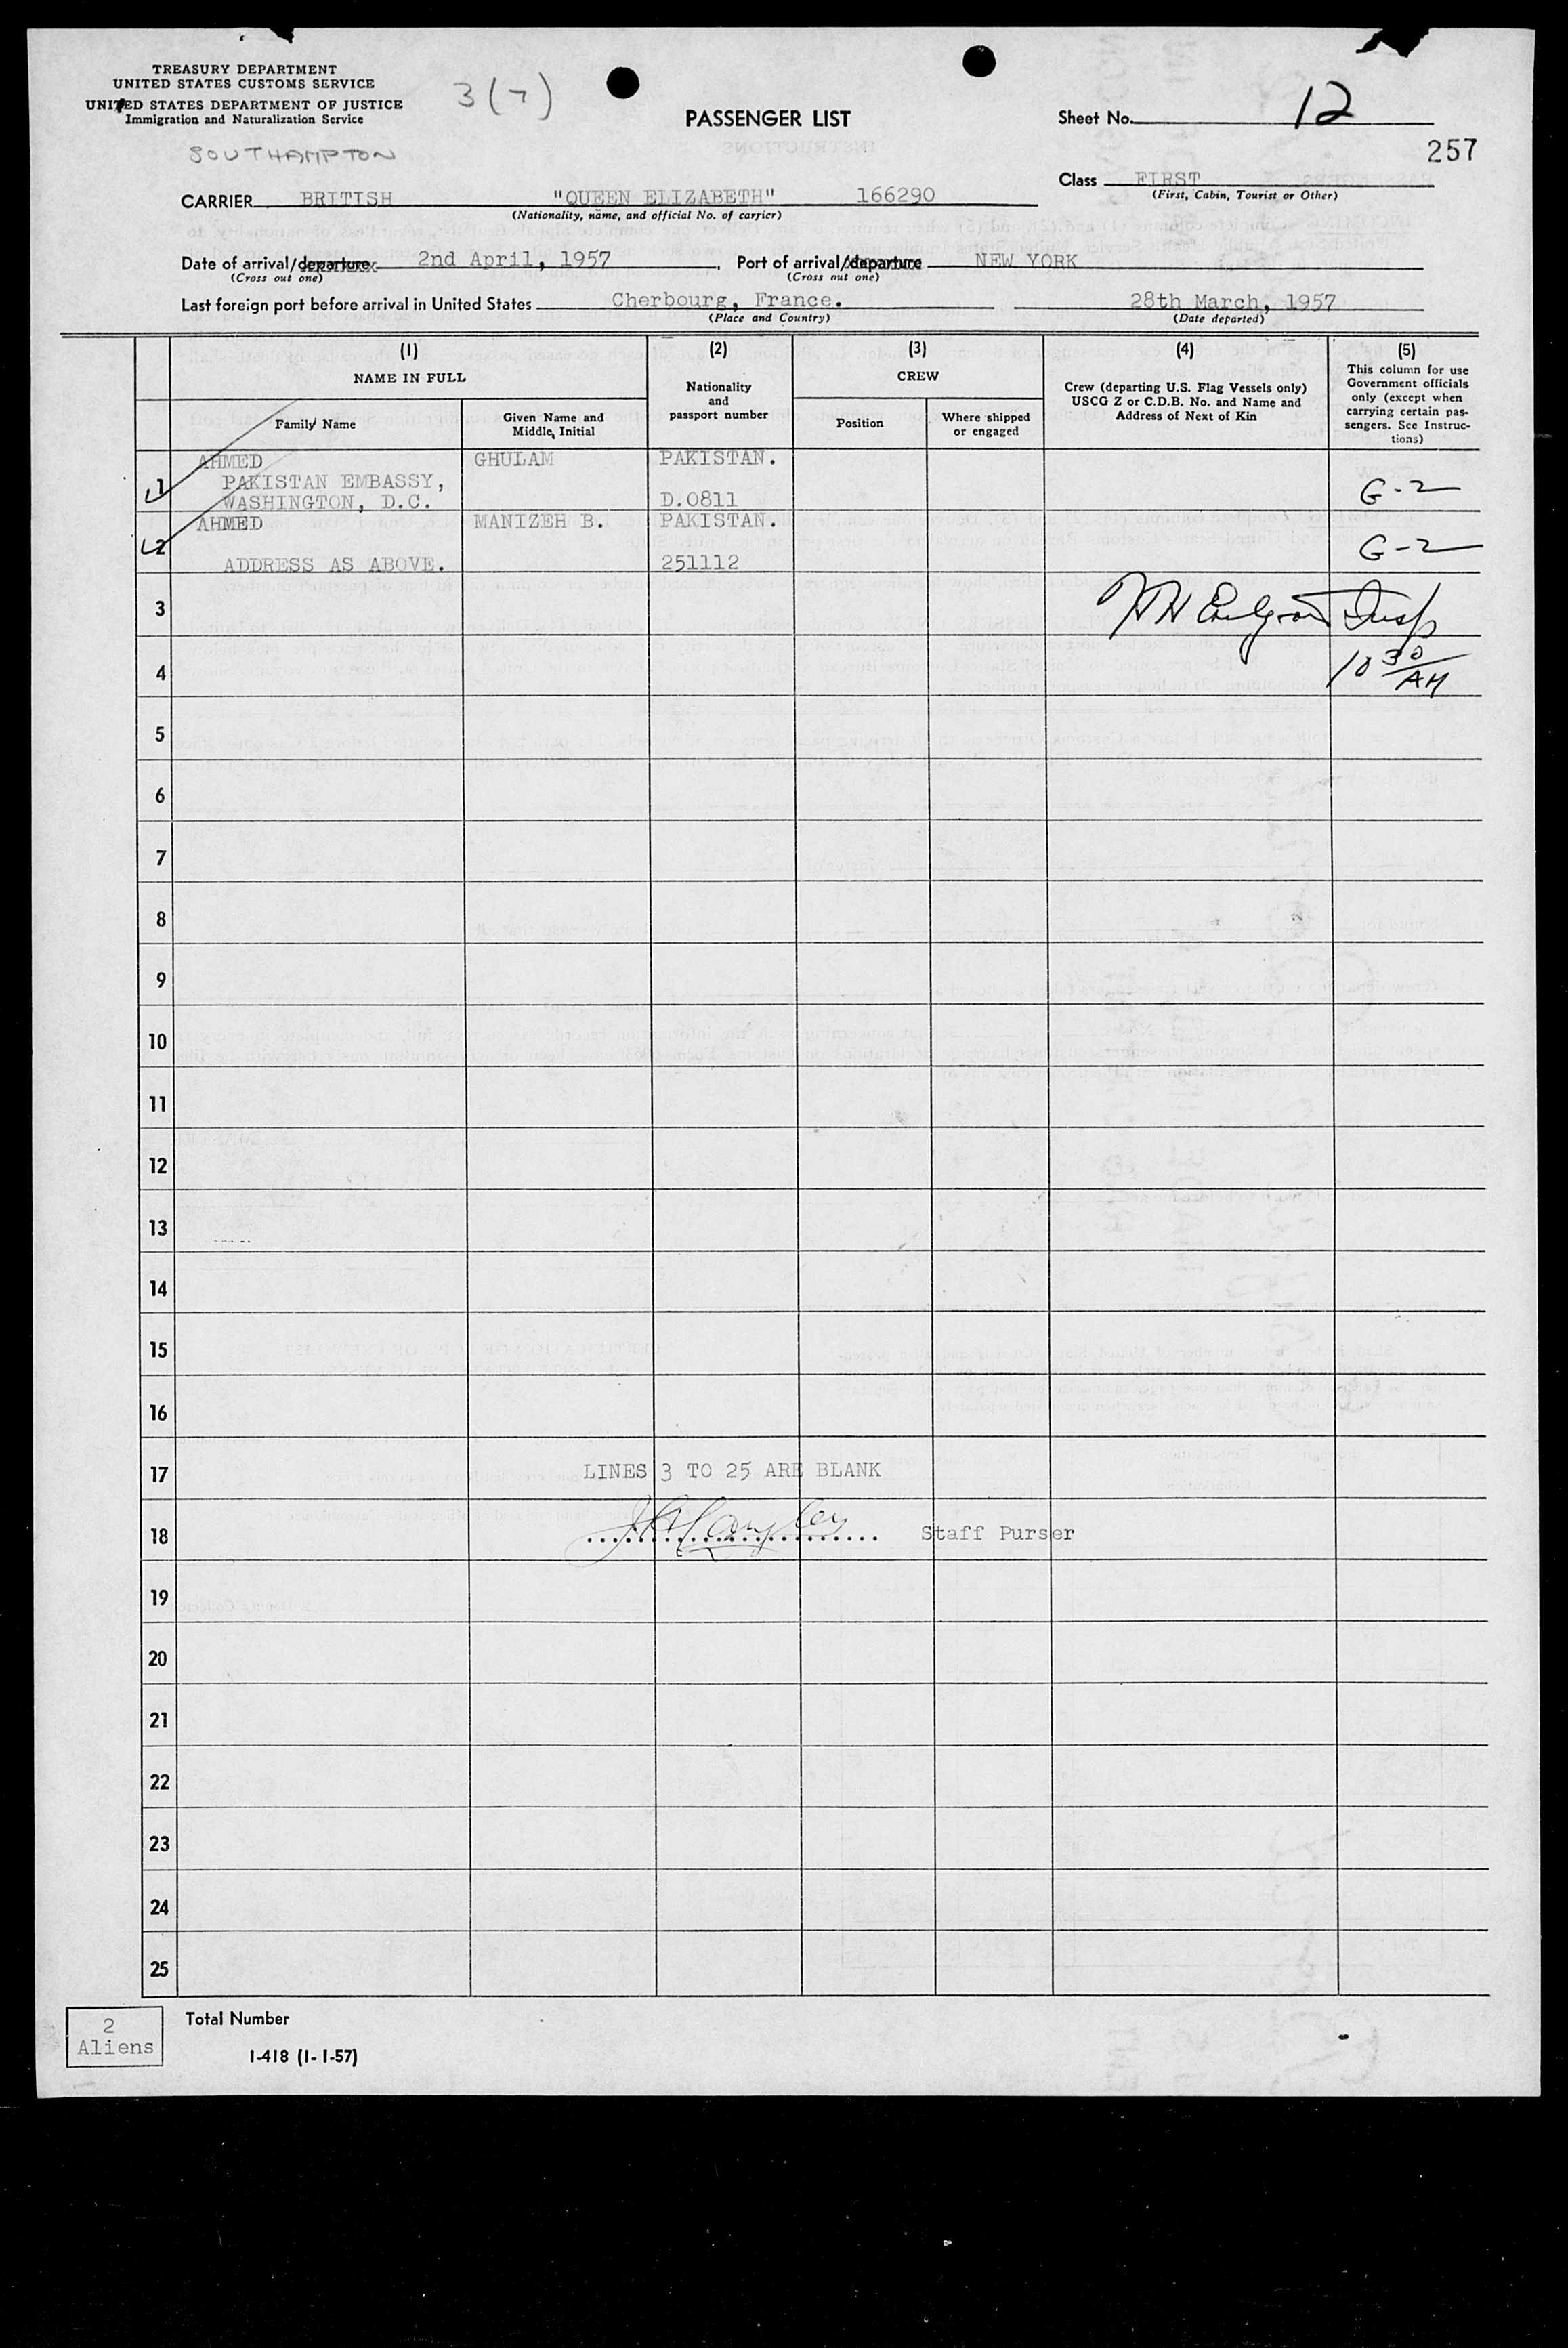 TREASURY DEPARTMENT
UNITED STATES CUSTOMS SERVICE
UNITED STATES DEPARTMENT OF JUSTICE
Immigration and Naturalization Service
3(7)
SOUTHAMPTON
PASSENGER LIST
Sheet No. 12
257
CARRIER BRITISH "QUEEN ELIZABETH" 166290
(Nationality, name, and official No. of carrier)
Class FIRST
(First, Cabin, Tourist or Other)
Date of arrival/departure 2nd April, 1957. Port of arrival/departure NEW YORK
(Cross out one) (Cross out one)
Last foreign port before arrival in United States Cherbourg, France. 28th March, 1957
(Place and Country) (Date departed)
(1) (2) (3) (4) (5)
NAME IN FULL
Family Name
Given Name and
Middle Initial
Nationality
and
passport number
CREW
Position
Where shipped
or engaged
Crew (departing U.S. Flag Vessels only)
USCG Z or C.D.B. No. and Name and
Address of Next of Kin
This column for use
Government officials
only (except when
carrying certain pas-
sengers. See Instruc-
tions)
AHMED GHULAM PAKISTAN.
1 PAKISTAN EMBASSY, G-2
WASHINGTON, D.C. D.0811
AHMED MANIZEH B. PAKISTAN.
2 G-2
ADDRESS AS ABOVE. 251112
3 Insp
4 10 30 AM
5
6
7
8
9
10
11
12
13
14
15
16
17 LINES 3 TO 25 ARE BLANK
18 Staff Purser
19
20
21
22
23
24
25
2
Aliens
Total Number
I-418 (1-1-57)